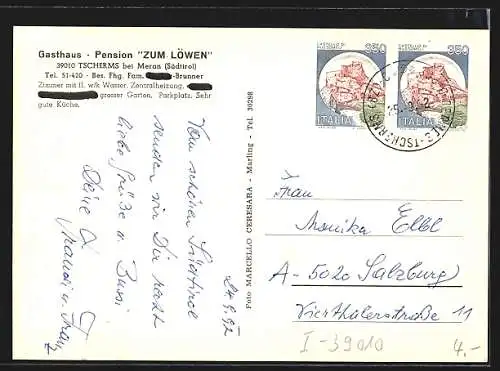 Gasthaus - Pension "ZUM LÖWEN"
39010 TSCHERMS bei Meran (Südtirol)
Tel. 51-420 - Bes. Fhg. Fam. -Brunner
Zimmer mit fl. w/k Wasser, Zentralheizung,
grosser Garten. Parkplatz. Sehr
gute Küche.
Vom schönen Südtirol
senden wir Dir recht
liebe Grüße u. Bussi
Deine
u. Franz
24.9.92
Foto MARCELLO CERESARA - Marling - Tel. 39298
350
350
ITALIA
ITALIA
TSCHERMS
Frau
Monika Elbl
A-5020 Salzburg
Vierthalerstraße 11
I-39010
4.-